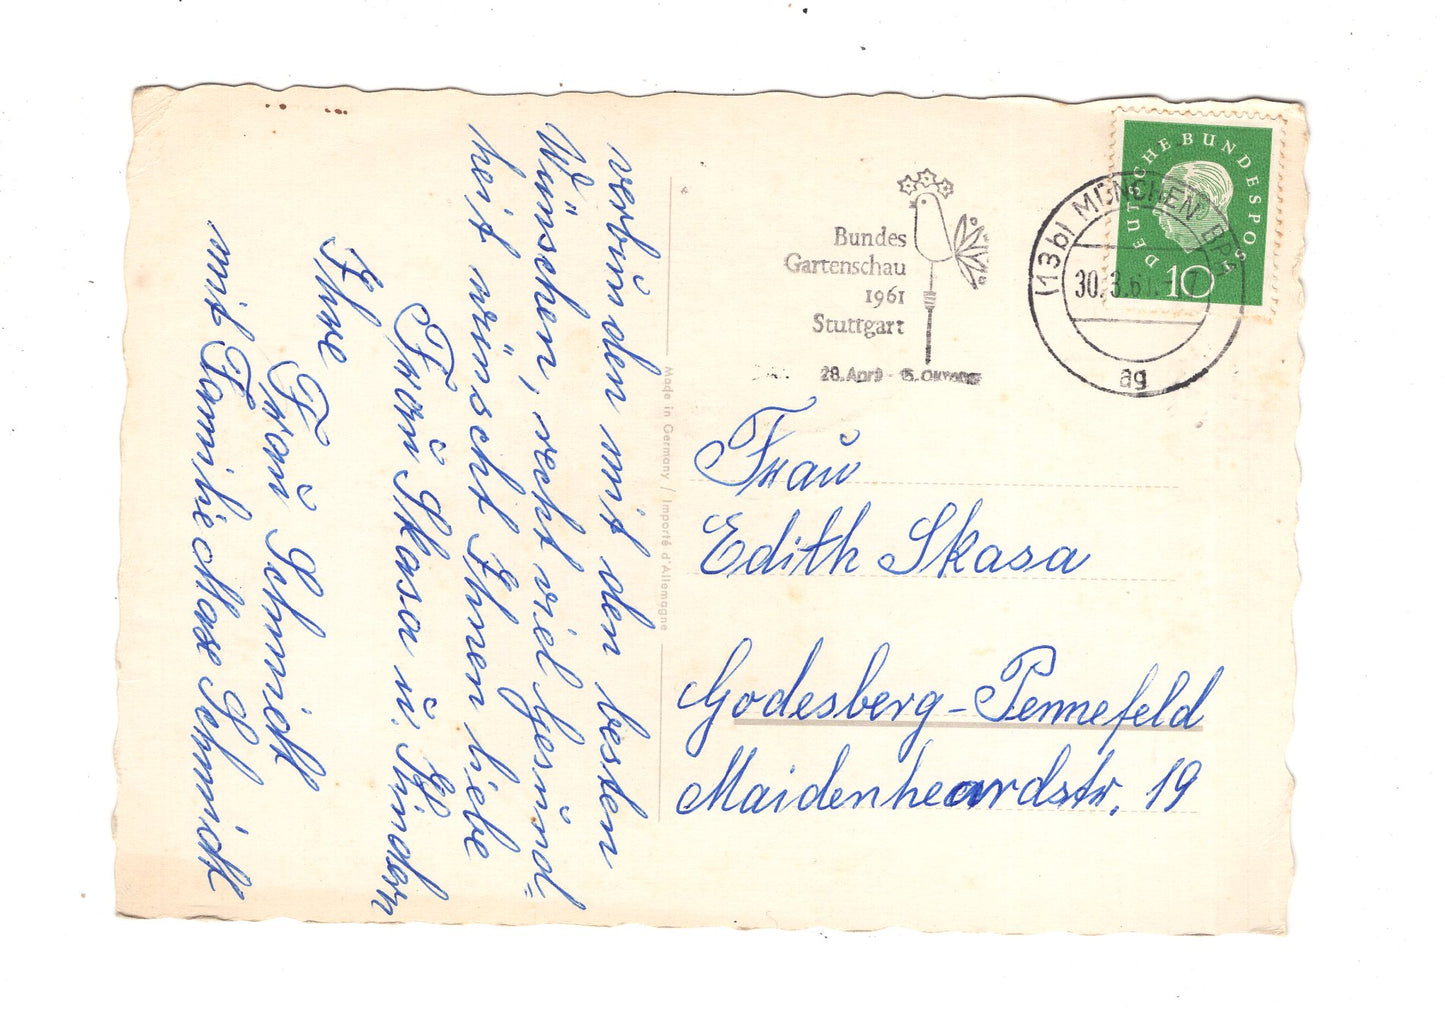 verbunden mit den besten
Wünschen, recht viel Gesund=
heit wünscht Ihnen liebe
Frau Skasa u. Kindern
Ihre
Frau Schmidt
mit Familie Max Schmidt
Made in Germany / Importé d'Allemagne
Bundes
Gartenschau
1961
Stuttgart
28. April - 15. Oktober
(13b) MÜNCHEN BPA
30.3.61.-17
ag
DEUTSCHE BUNDESPOST
10
Frau
Edith Skasa
Godesberg-Pennefeld
Maidenheardstr. 19